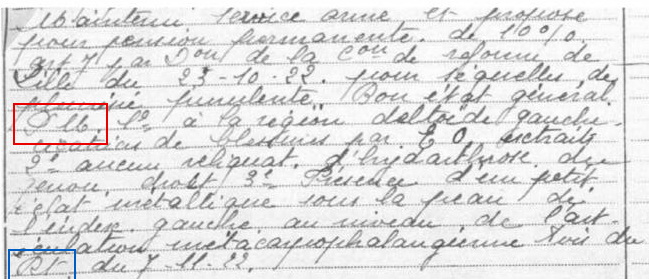 Maintenu service armé et proposé
pour pension permanente de 10%
art 7 par Don de la Con de réforme de
Lille du 23-10-22. pour séquelles de
pleurésie purulente. Bon état général.
1º à la région deltoïde gauche
cicatrices de blessures par E O. extraits
2º aucun reliquat d'hydarthrose du
genou droit 3º Présence d'un petit
éclat métallique sous la peau de
l'index gauche au niveau de l'art-
iculation métacarpophalangienne Avis du
du 7-11-22.